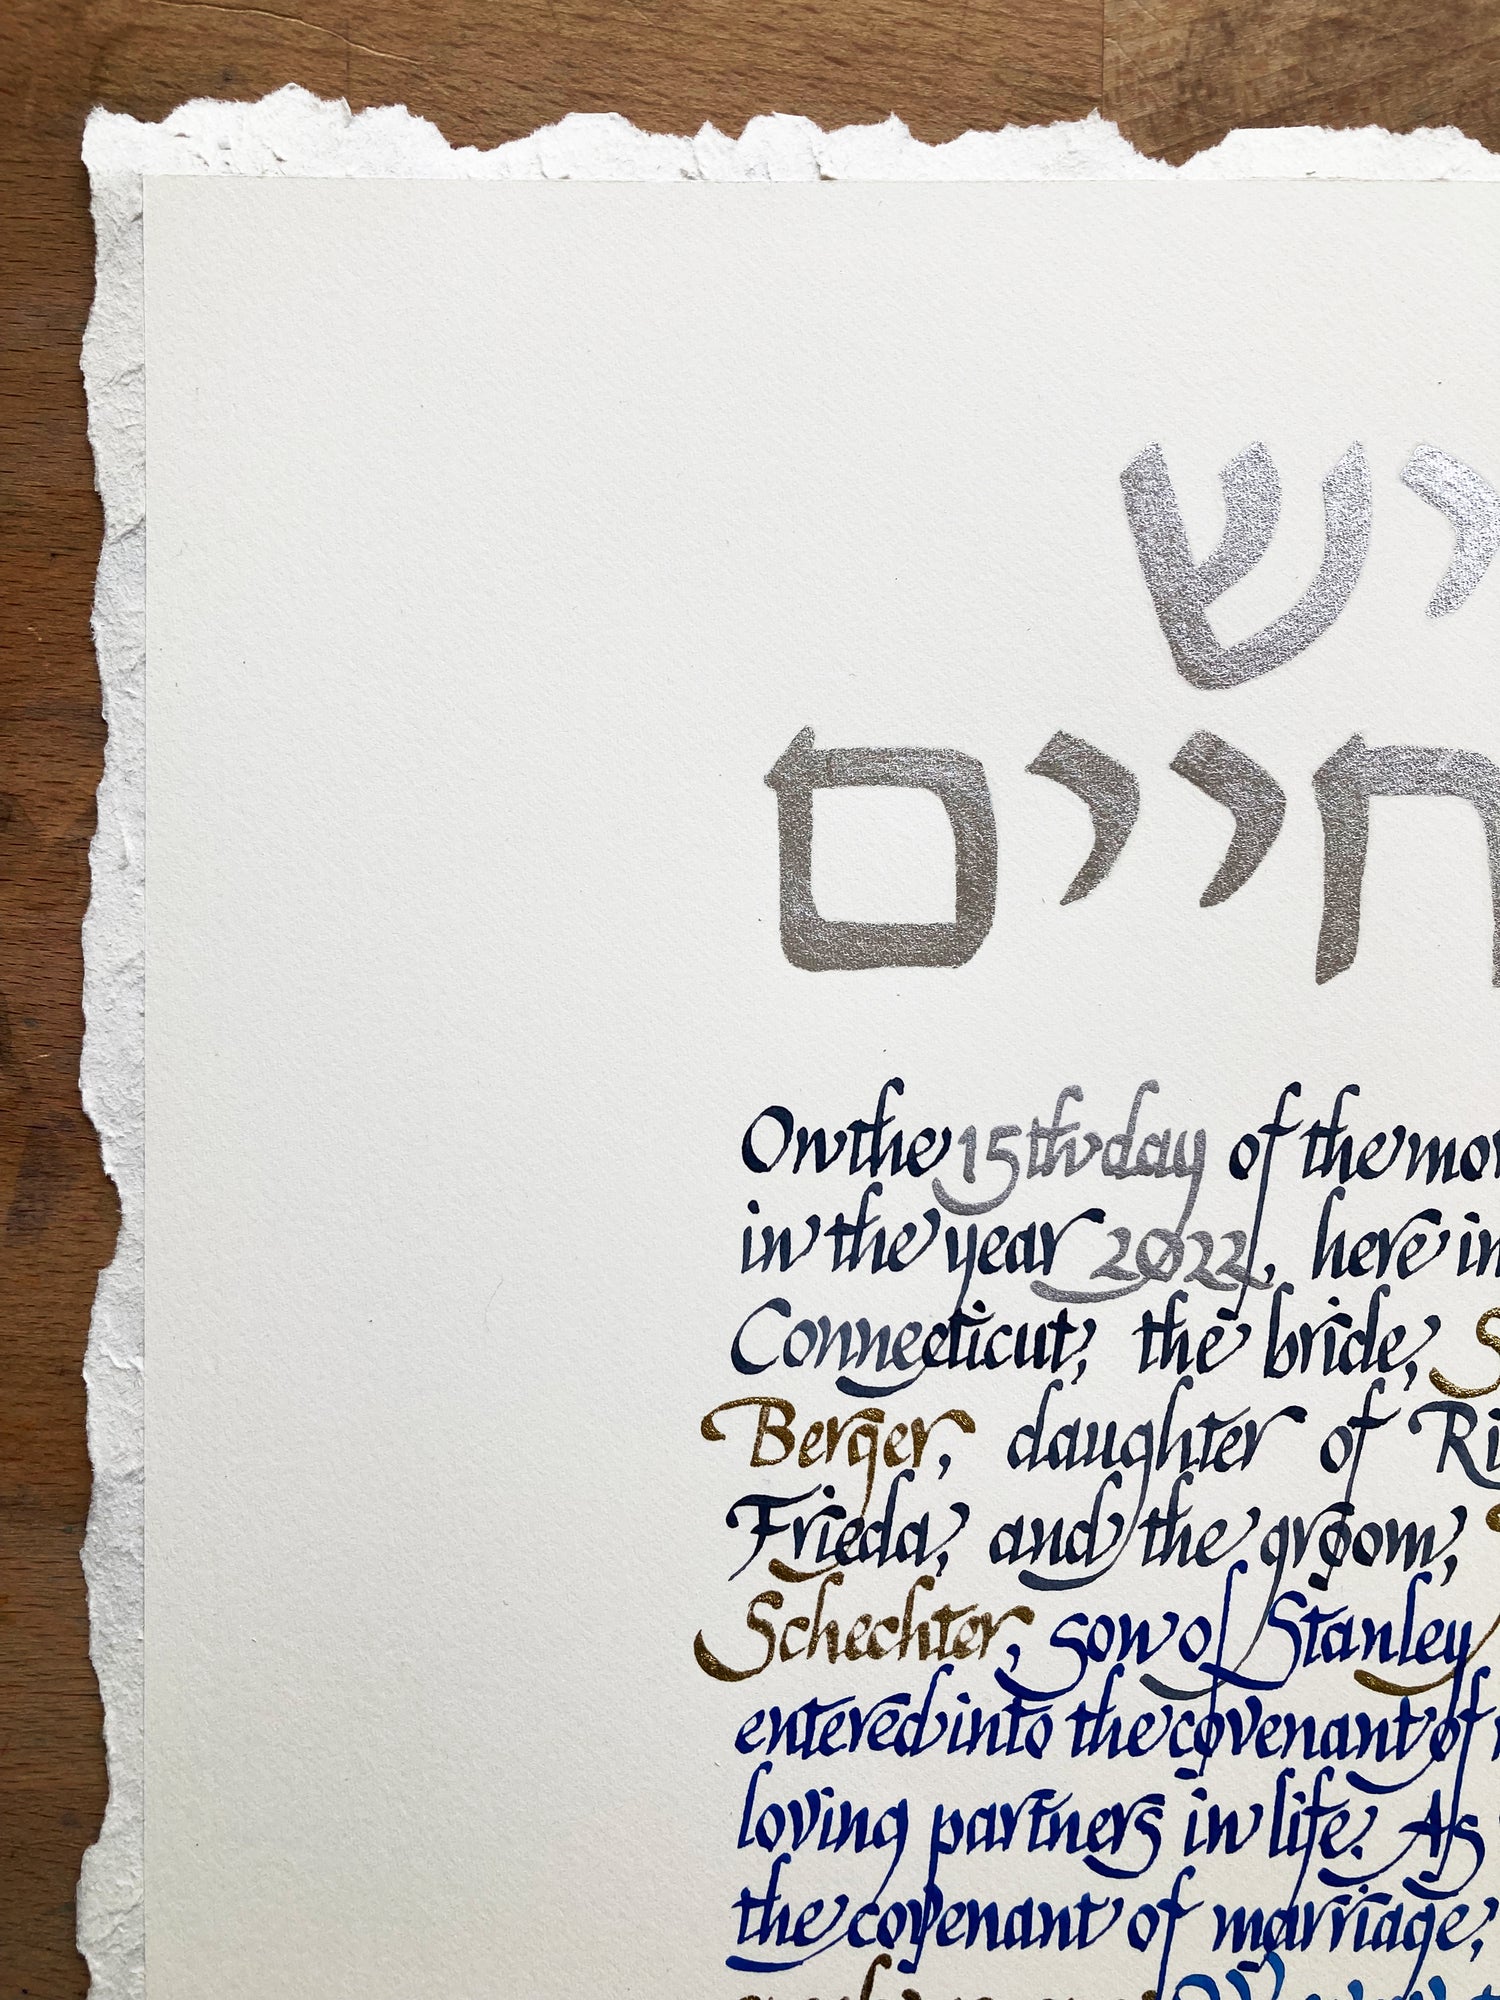 יש
חיים
On the 15th day of the
in the year 2022, here in
Connecticut, the bride,
Berger, daughter of
Frieda, and the groom,
Schechter, son of Stanley
entered into the covenant of
loving partners in life. As
the covenant of marriage,